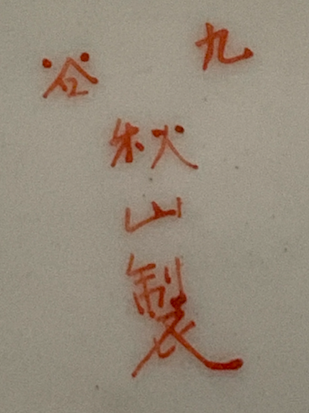 九谷
秋山製